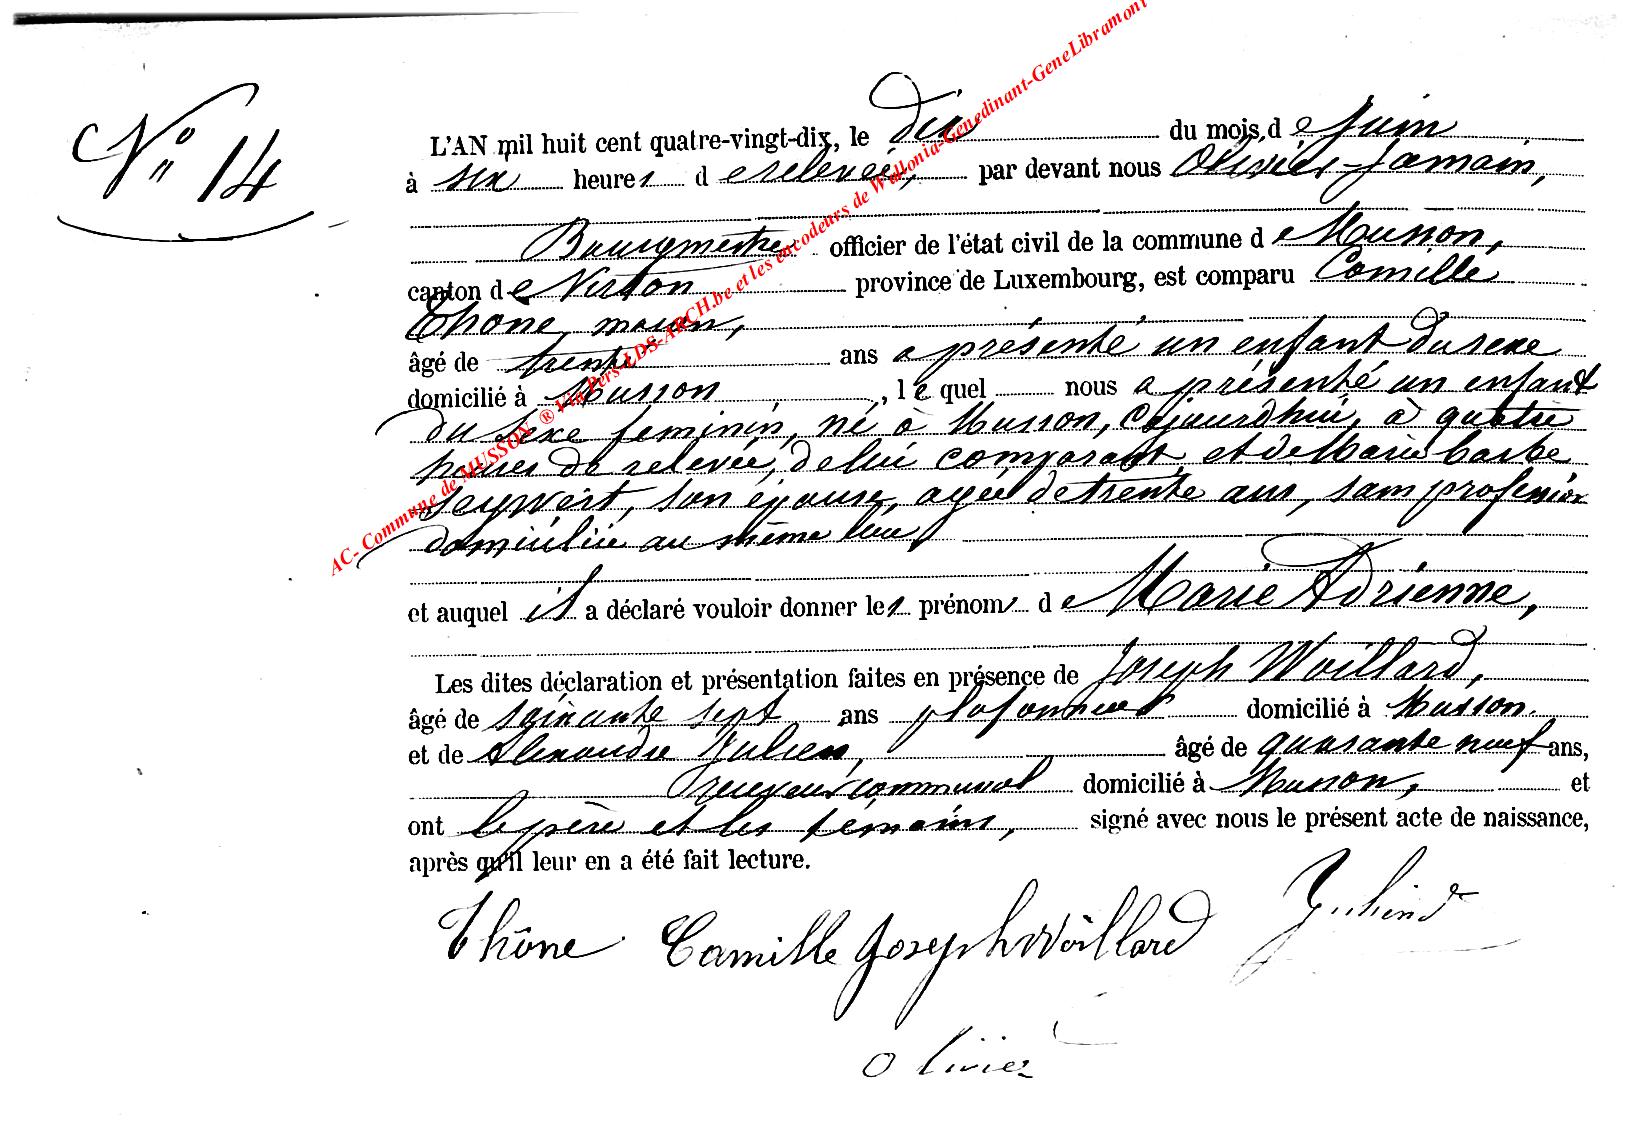 N° 14
L'AN mil huit cent quatre-vingt-dix, le dix du mois de Juin
à six heures de relevée, par devant nous Olivier-Jamain,
Bourgmestre officier de l'état civil de la commune de Musson,
canton de Virton province de Luxembourg, est comparu Camille
Thône, maçon,
âgé de trente ans a présenté un enfant du sexe
domicilié à Musson, lequel nous a présenté un enfant
du sexe feminin, né à Musson, cejourd'hui, à quatre
heures de relevée, de lui comparant, et de Marie barbe
Seywert, son épouse, agée de trente ans, sans profession
domiciliée au même lieu
et auquel il a déclaré vouloir donner les prénoms de Marie Adrienne,
Les dites déclaration et présentation faites en présence de Joseph Woillard,
âgé de sept ans plafonneur domicilié à Musson.
et de Alexandre Julien, âgé de quarante neuf ans,
receveur communal domicilié à Musson, et
ont le père et les témoins, signé avec nous le présent acte de naissance,
après qu'il leur en a été fait lecture.
Thône Camille Joseph Woillard
Olivier
AC- Commune de MUSSON ® Via Pers-LDS-ARCH.be et les encodeurs de Wallonia-Genedinant-GeneLibramont